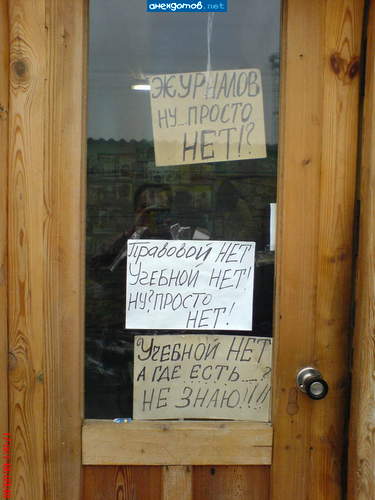 анекдотов.net
ЖУРНАЛОВ
НУ...ПРОСТО
НЕТ!?
Правовой НЕТ
УчЕБНОЙ НЕТ!
НУ?ПРОСТО
НЕТ!
УчЕБНОЙ НЕТ
А ГДЕ ЕСТЬ...?
НЕ ЗНАЮ!!!!